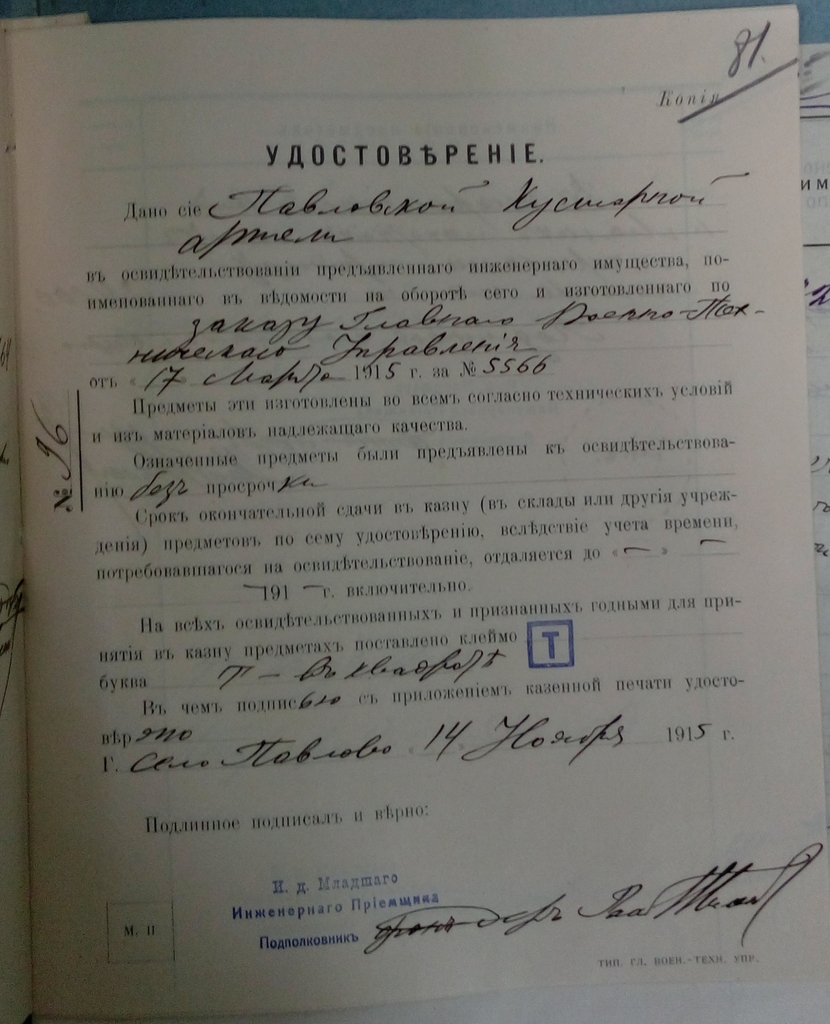 81.
Копія
УДОСТОВѢРЕНІЕ.
Дано сіе Павловской Кустарной
артели
въ освидѣтельствованіи предъявленнаго инженернаго имущества, по-
именованнаго въ вѣдомости на оборотѣ сего и изготовленнаго по
заказу Главнаго Военно-Тех-
ническаго Управленія
отъ «17 Марта 1915 г. за № 5566
№ 96
Предметы эти изготовлены во всемъ согласно техническихъ условій
и изъ матеріаловъ надлежащаго качества.
Означенные предметы были предъявлены къ освидѣтельствова-
нію безъ просрочки
Срокъ окончательной сдачи въ казну (въ склады или другія учреж-
денія) предметовъ по сему удостовѣренію, вслѣдствіе учета времени,
потребовавшагося на освидѣтельствованіе, отдаляется до « — » —
— 191 — г. включительно.
На всѣхъ освидѣтельствованныхъ и признанныхъ годными для при-
нятія въ казну предметахъ поставлено клеймо T
буква Т — въ квадратѣ
Въ чемъ подписью съ приложеніемъ казенной печати удосто-
вѣрено
Г. Село Павлово 14 Ноября 1915 г.
Подлинное подписалъ и вѣрно:
И. д. Младшаго
Инженернаго Пріемщика
Подполковникъ
М. П
ТИП. ГЛ. ВОЕН.-ТЕХН. УПР.